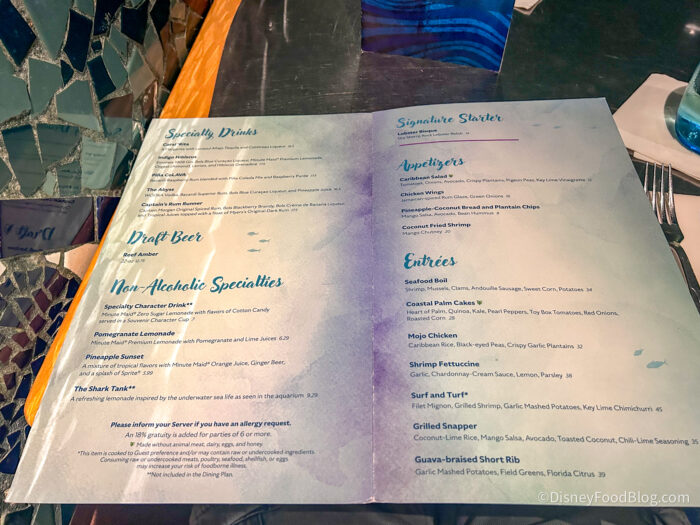 Specialty Drinks
Coral 'Rita
Indigo Hibiscus
Piña CoLAVA
The Abyss
Captain's Rum Runner
Draft Beer
Reef Amber
Non-Alcoholic Specialties
Specialty Character Drink**
Minute Maid® Zero Sugar Lemonade with flavors of Cotton Candy
served in a Souvenir Character Cup
Pomegranate Lemonade
Minute Maid® Premium Lemonade with Pomegranate and Lime Juices 6.29
Pineapple Sunset
A mixture of tropical flavors with Minute Maid® Orange Juice, Ginger Beer,
and a splash of Sprite® 5.99
The Shark Tank**
A refreshing lemonade inspired by the underwater sea life as seen in the aquarium 9.29
Please inform your Server if you have an allergy request.
An 18% gratuity is added for parties of 6 or more.
Made without animal meat, dairy, eggs, and honey
*This item is cooked to Guest preference and/or may contain raw or undercooked ingredients.
Consuming raw or undercooked meats, poultry, seafood, shellfish, or eggs
may increase your risk of foodborne illness.
**Not included in the Dining Plan.
Signature Starter
Lobster Bisque
Appetizers
Caribbean Salad
Tomatoes, Onions, Avocado, Crispy Plantains, Pigeon Peas, Key Lime Vinaigrette
Chicken Wings
Jamaican-spiced Rum Glaze, Green Onions
Pineapple-Coconut Bread and Plantain Chips
Mango Salsa, Avocado, Bean Hummus
Coconut Fried Shrimp
Mango Chutney 20
Entrées
Seafood Boil
Shrimp, Mussels, Clams, Andouille Sausage, Sweet Corn, Potatoes 34
Coastal Palm Cakes
Heart of Palm, Quinoa, Kale, Pearl Peppers, Toy Box Tomatoes, Red Onions,
Roasted Corn 28
Mojo Chicken
Caribbean Rice, Black-eyed Peas, Crispy Garlic Plantains 32
Shrimp Fettuccine
Garlic, Chardonnay-Cream Sauce, Lemon, Parsley 38
Surf and Turf*
Filet Mignon, Grilled Shrimp, Garlic Mashed Potatoes, Key Lime Chimichurri 45
Grilled Snapper
Coconut-Lime Rice, Mango Salsa, Avocado, Toasted Coconut, Chili-Lime Seasoning 35
Guava-braised Short Rib
Garlic Mashed Potatoes, Field Greens, Florida Citrus 39
©DisneyFoodBlog.com